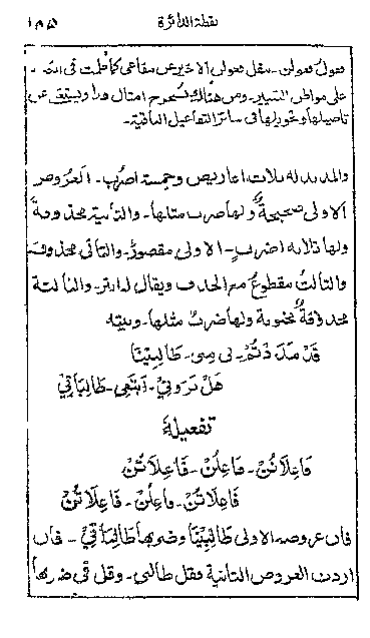 نقطة الدائرة ١٥٥
فعولُ فعولن - فنقل فعولن الاخير عن مفاعي كما علمت فى
على مواطن التغيير - ومن هنالك تستخرج امثال وتستغني عن
تاصيلها وتحويلها فى سائر التفاعيل الباقية -
والمديد له ثلاث اعاريض وخمسة اضرب - العروض
الاولى صحيحة ولها ضرب مثلها - والثانية محذوفة
ولها ثلاثة اضرب - الاولى مقصورٌ - والثانى محذوف
والثالث مقطوعٌ مع الحذف ويقال له ابتر - والثالثة
محذوفةٌ مخبونة ولها ضربٌ مثلها - وبيته
قَدْ مَدَدْتُمْ - لى مِنى - طَالِبِيْنَا
هَلْ تَرَوْنِيْ - اَنتَهِى - طَالِبَاتِيْ
تفعيلهُ
فَاعِلَاتُنْ - فَاعِلُنْ - فَاعِلَاتُنْ
فَاعِلَاتُنْ - فاعِلُنْ - فَاعِلَاتُنْ
فان عروضه الاولى طَالِبِيْنَا وضربها طَالِبَاتِيْ - فان
اردت العروض الثانية فقل طالبى - وقل فى ضربها